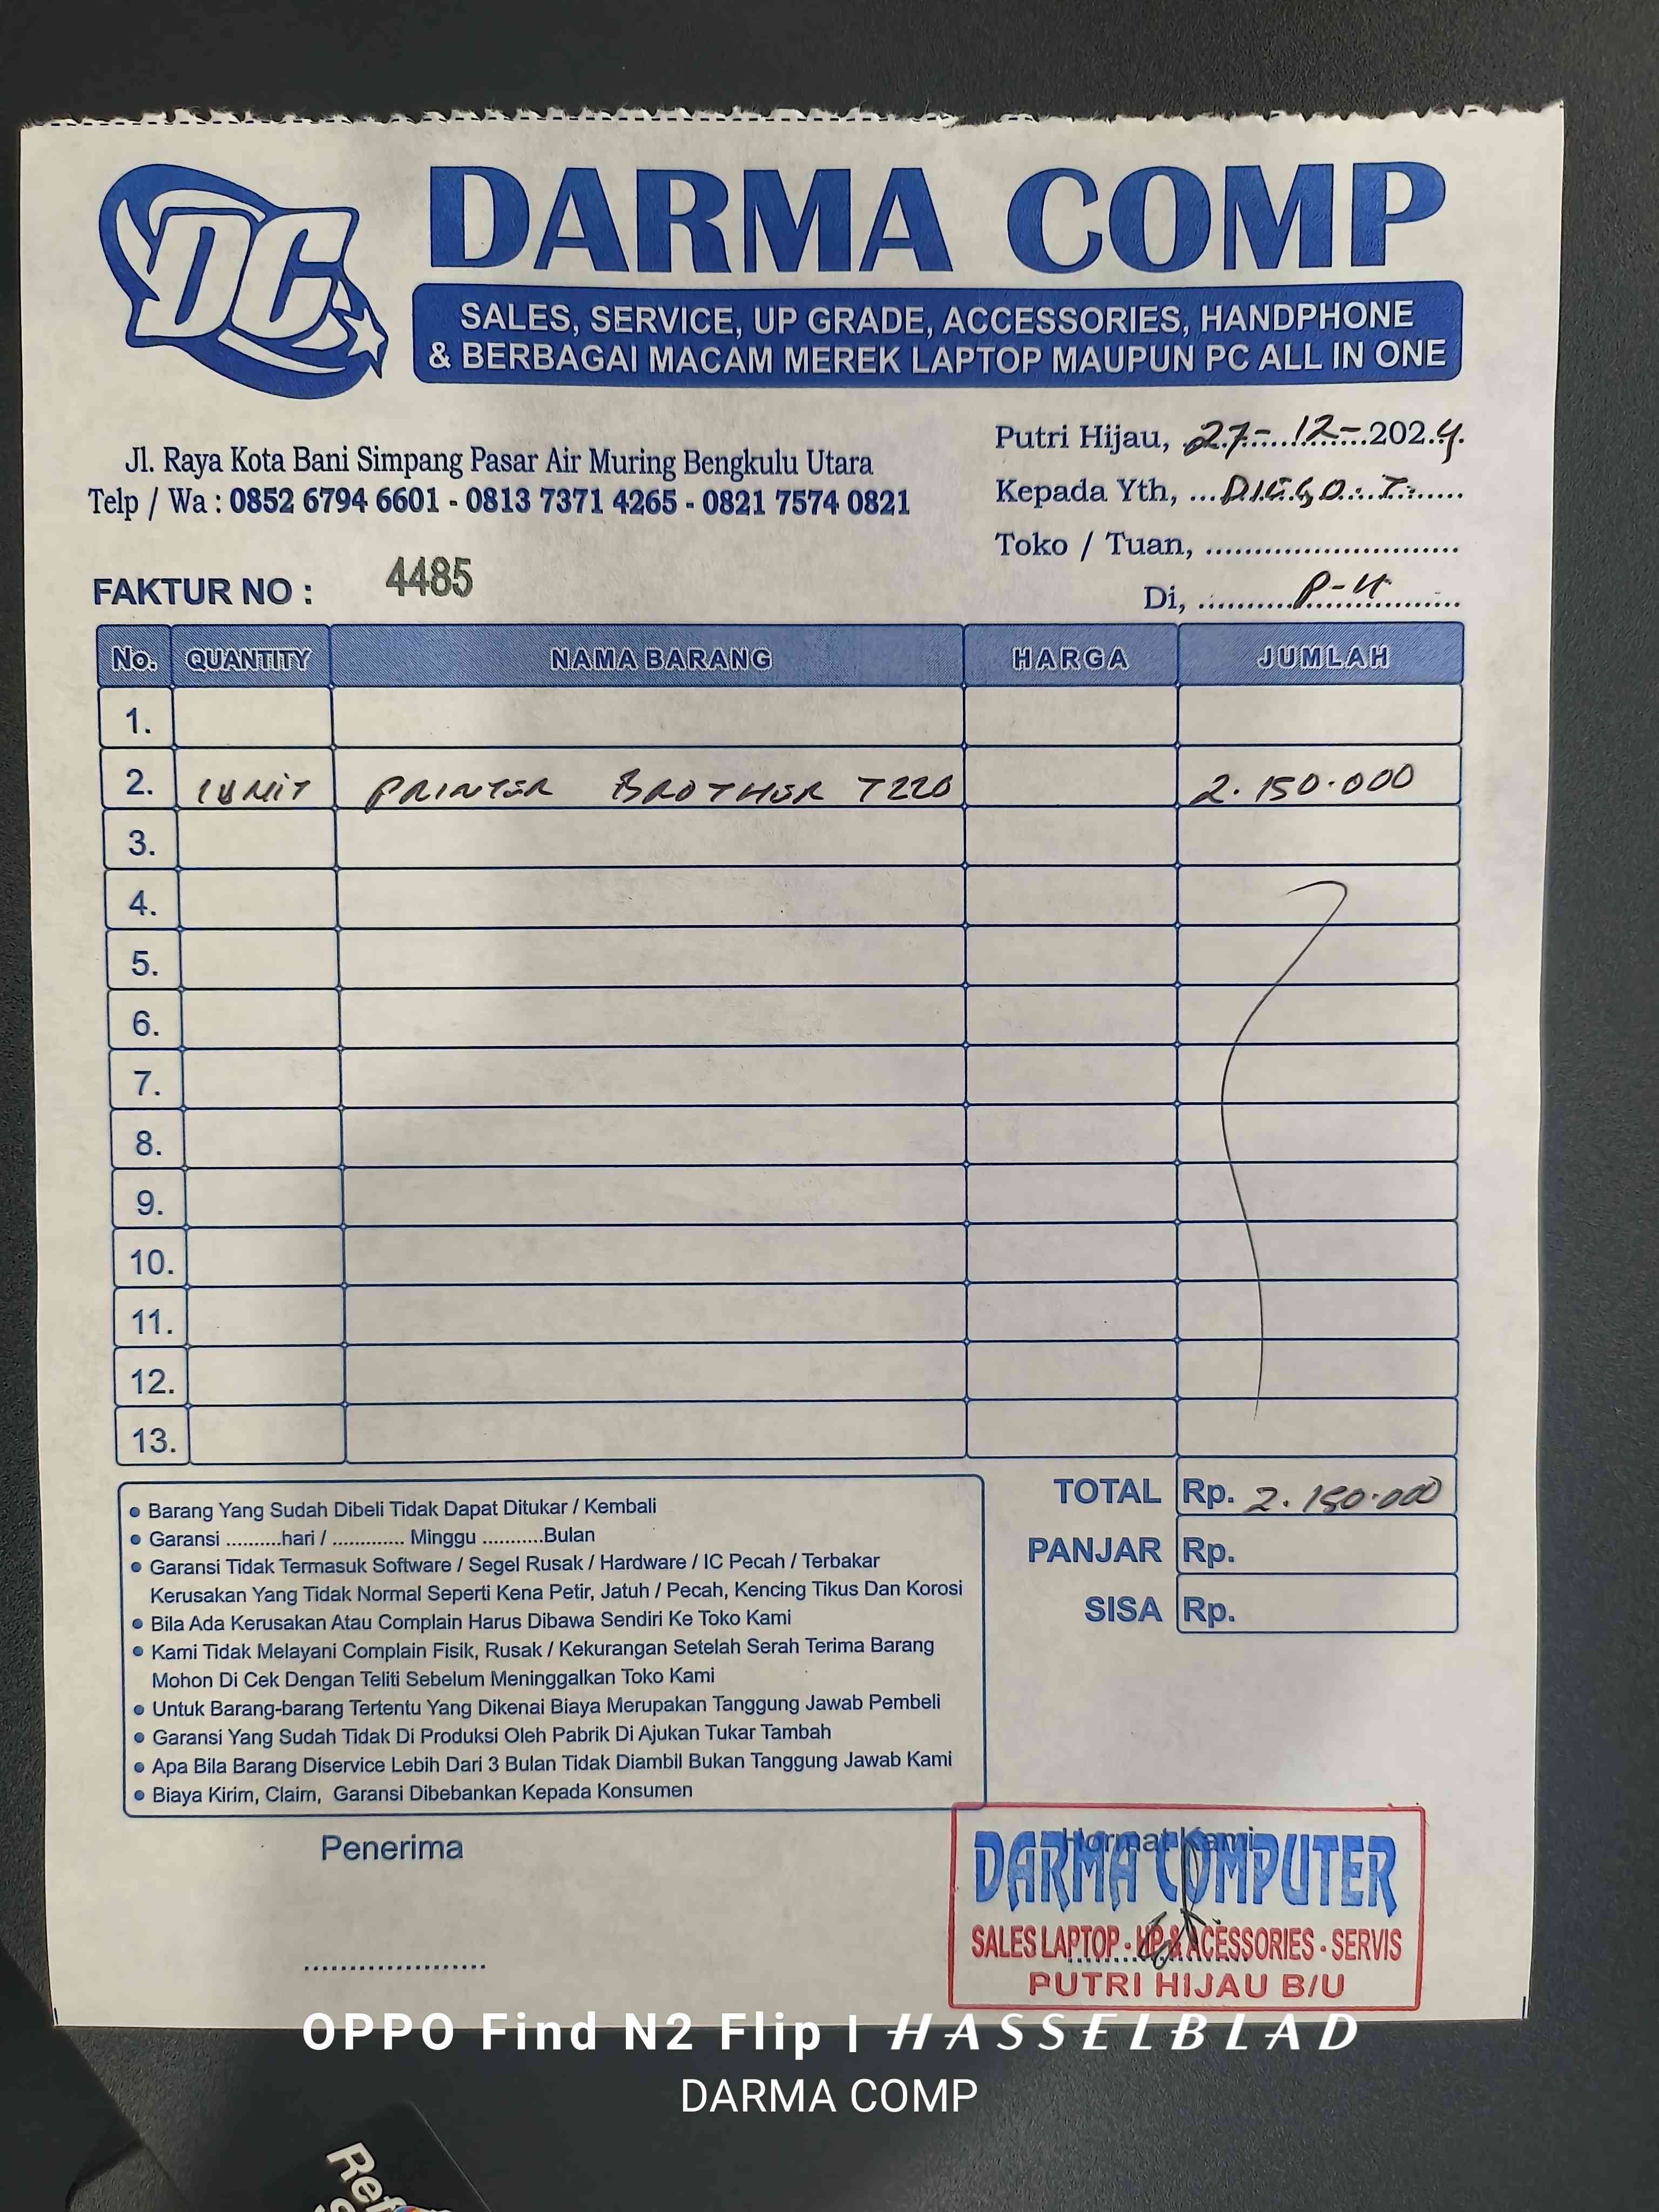 DC
DARMA COMP
SALES, SERVICE, UP GRADE, ACCESSORIES, HANDPHONE
& BERBAGAI MACAM MEREK LAPTOP MAUPUN PC ALL IN ONE
Jl. Raya Kota Bani Simpang Pasar Air Muring Bengkulu Utara
Telp / Wa : 0852 6794 6601 - 0813 7371 4265 - 0821 7574 0821
Putri Hijau, 27-12-2024.
Kepada Yth, ...DIEGO.T.......
Toko / Tuan, ..........................
Di, ..........P-H..............
FAKTUR NO : 4485
No. QUANTITY NAMA BARANG HARGA JUMLAH
1.
2. 1 UNIT PRINTER BROTHER T220 2.150.000
3.
4.
5.
6.
7.
8.
9.
10.
11.
12.
13.
TOTAL Rp. 2.150.000
PANJAR Rp.
SISA Rp.
• Barang Yang Sudah Dibeli Tidak Dapat Ditukar / Kembali
• Garansi ..........hari / ............. Minggu ...........Bulan
• Garansi Tidak Termasuk Software / Segel Rusak / Hardware / IC Pecah / Terbakar
Kerusakan Yang Tidak Normal Seperti Kena Petir, Jatuh / Pecah, Kencing Tikus Dan Korosi
• Bila Ada Kerusakan Atau Complain Harus Dibawa Sendiri Ke Toko Kami
• Kami Tidak Melayani Complain Fisik, Rusak / Kekurangan Setelah Serah Terima Barang
Mohon Di Cek Dengan Teliti Sebelum Meninggalkan Toko Kami
• Untuk Barang-barang Tertentu Yang Dikenai Biaya Merupakan Tanggung Jawab Pembeli
• Garansi Yang Sudah Tidak Di Produksi Oleh Pabrik Di Ajukan Tukar Tambah
• Apa Bila Barang Diservice Lebih Dari 3 Bulan Tidak Diambil Bukan Tanggung Jawab Kami
• Biaya Kirim, Claim, Garansi Dibebankan Kepada Konsumen
Penerima
Hormat Kami
DARMA COMPUTER
SALES LAPTOP - HP & ACESSORIES - SERVIS
PUTRI HIJAU B/U
OPPO Find N2 Flip | HASSELBLAD
DARMA COMP